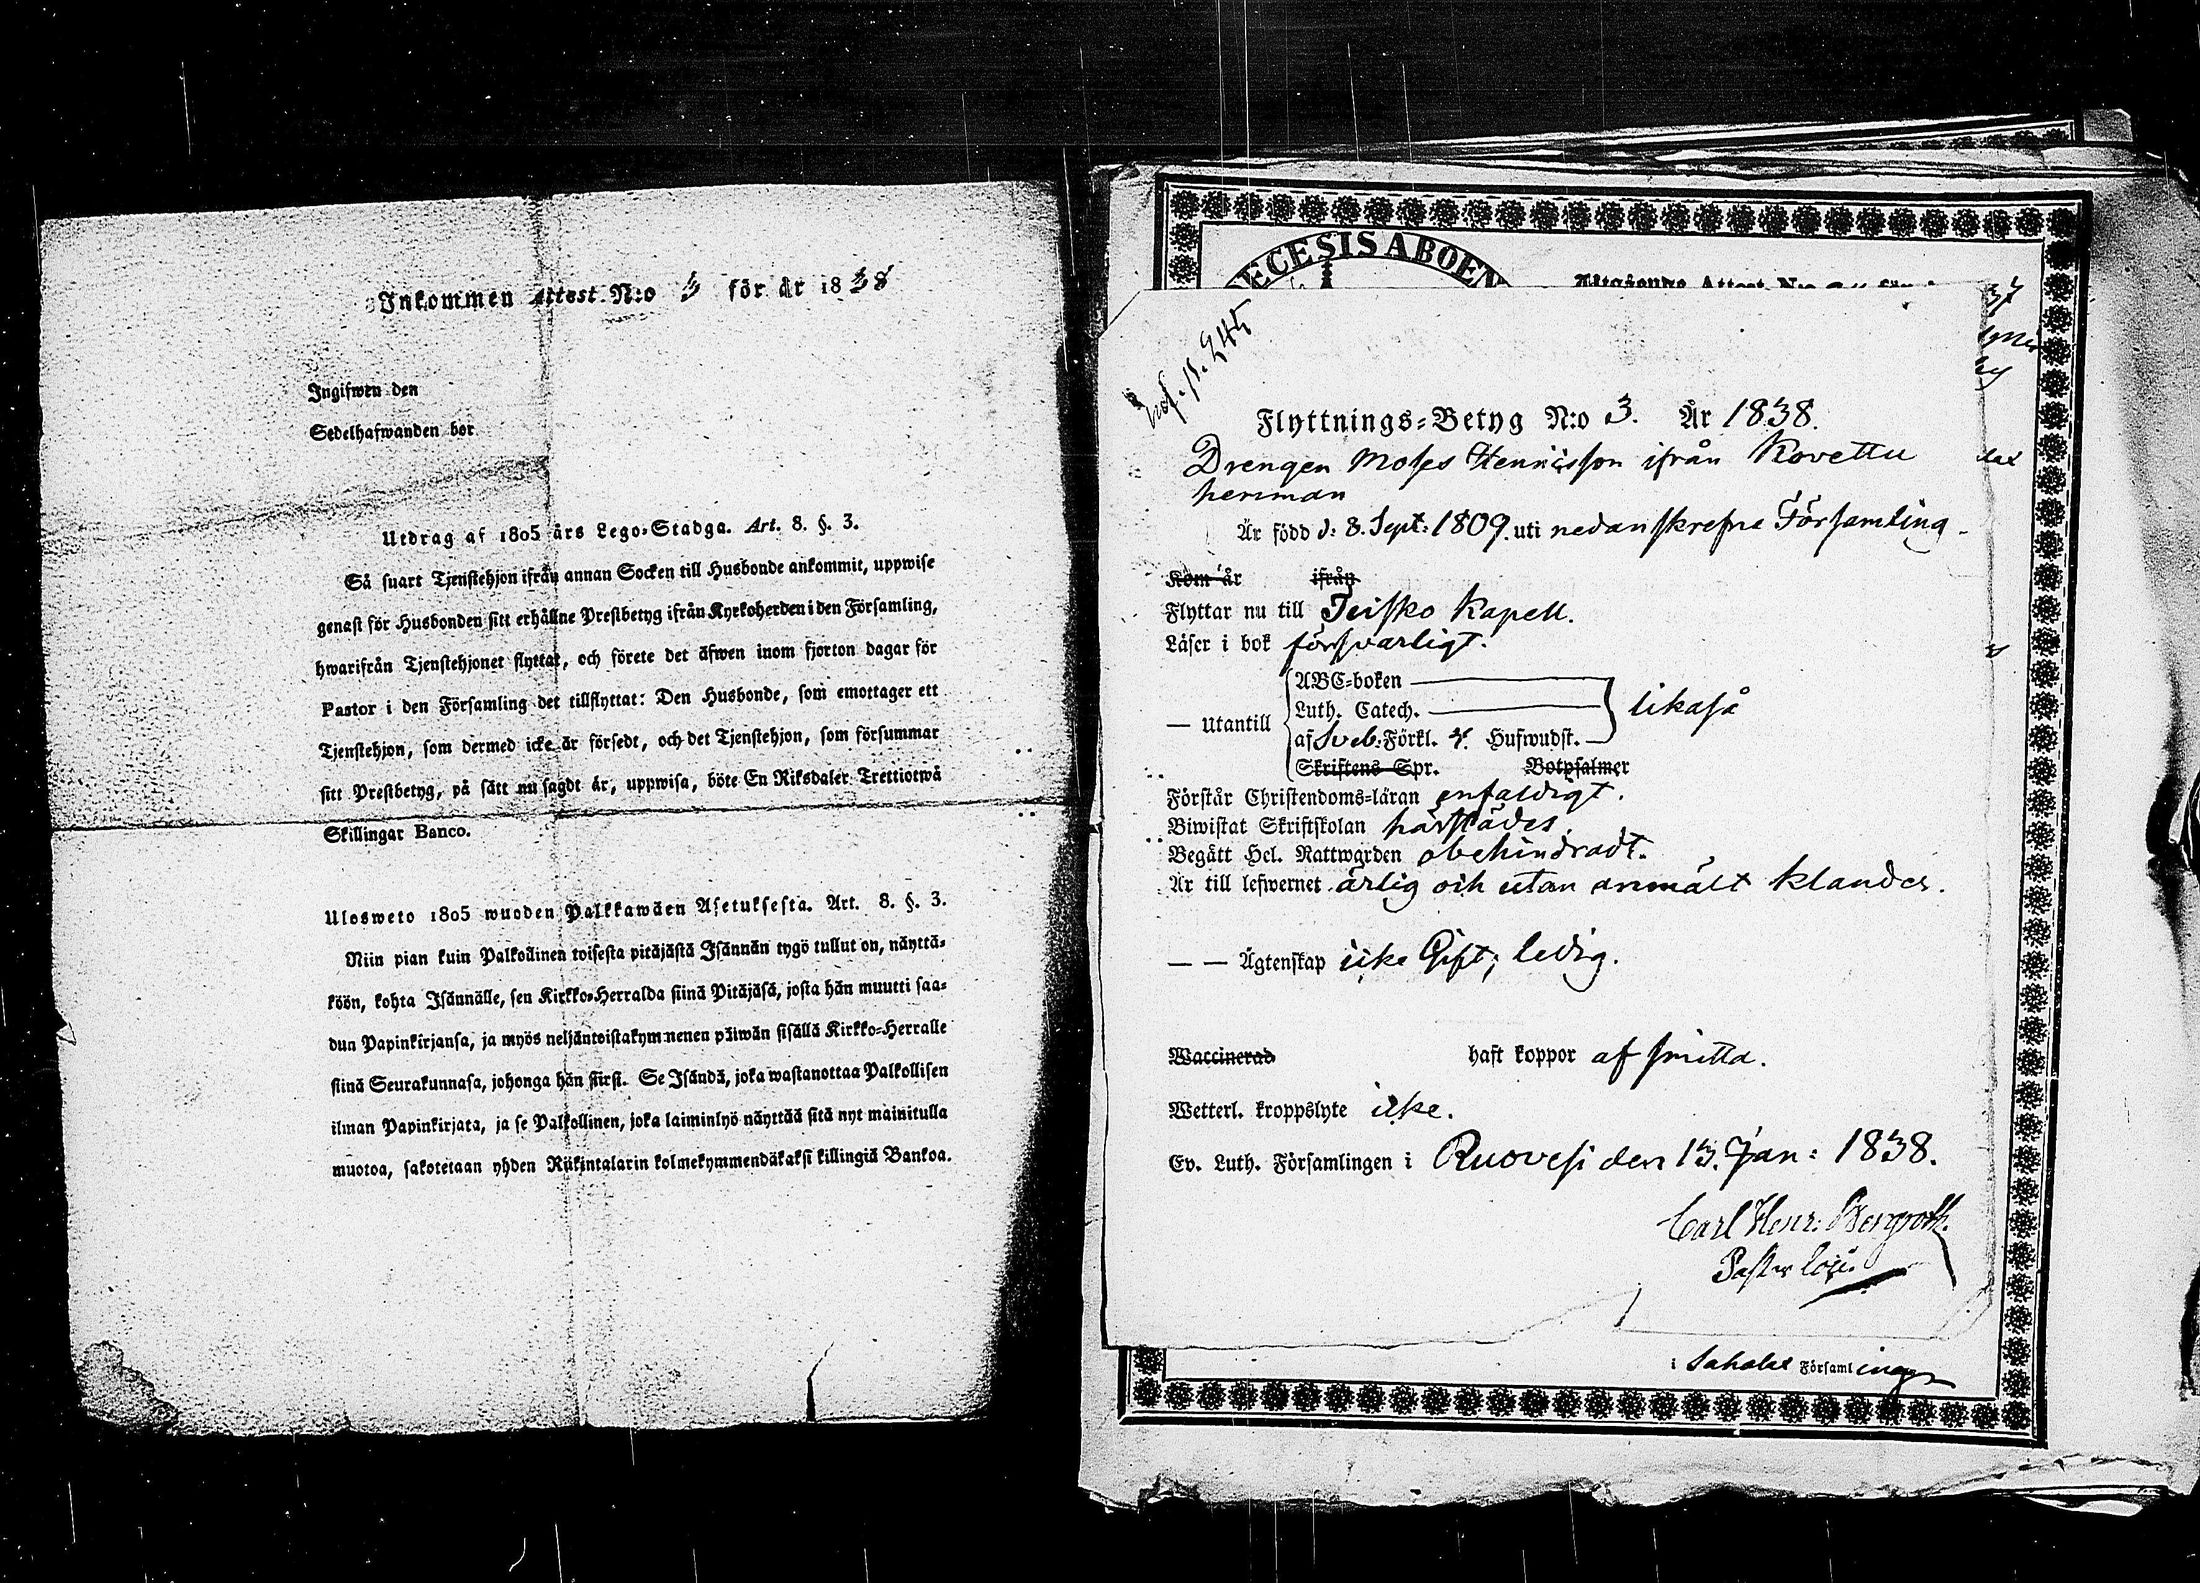 Inkommen Attest. N:o 3 för år 1838
Ingifwen den
Sedelhafwanden bor
Utdrag af 1805 års Lego-Stadga. Art. 8. §. 3.
Så snart Tjenstehjon ifrån annan Socken till Husbonde ankommit, uppwise
genast för Husbonden sitt erhållne Prestbetyg ifrån Kyrkoherden i den Församling,
hwarifrån Tjenstehjonet flyttat, och förete det äfwen inom fjorton dagar för
Pastor i den Församling det tillflyttat: Den Husbonde, som emottager ett
Tjenstehjon, som dermed icke är försedt, och det Tjenstehjon, som försummar
sitt Prestbetyg, på sätt nu sagdt är, uppwisa, böte En Riksdaler Trettiotwå
Skillingar Banco.
Ulosweto 1805 wuoden Palkkawäen Asetuksesta. Art. 8. §. 3.
Niin pian kuin Palkollinen toisesta pitäjästä Isännän tygö tullut on, näyttä-
köön, kohta Isännälle, sen Kirkko-Herralda siinä Pitäjäsä, josta hän muutti saa-
dun Papinkirjansa, ja myös neljäntoistakymmenen päiwän sisällä Kirkko-Herralle
siinä Seurakunnasa, johonga hän siirsi. Se Isändä, joka wastanottaa Palkollisen
ilman Papinkirjata, ja se Palkollinen, joka laiminlyö näyttää sitä nyt mainitulla
muotoa, sakotetaan yhden Riikintalarin kolmekymmendäkaksi killingiä Bankoa.
ECESIS ABOEN
Utgående Attest N:o
p. 245
Flyttnings-Betyg N:o 3. År 1838.
Drengen Moses Henriksson ifrån Kovettu
herrman
Är född d: 8. Sept: 1809. uti nedanskrefne Församling
Kom år ifrån
Flyttar nu till Teisko Kapell.
Läser i bok försvarligt.
ABC-boken
Luth. Catech.
— Utantill likaså
af Sveb: Förkl. 4. Hufwudst.
Skriftens Spr. Botpsalmer
Förstår Christendoms-läran enfaldigt.
Biwistat Skriftskolan härstädes.
Begått Hel. Nattwarden obehindradt.
Är till lefwernet ärlig och utan anmält klander.
— — Ägtenskap icke Gift; ledig.
Waccinerad haft koppor af smitta.
Wetterl. kroppslyte icke.
Ev. Luth. Församlingen i Ruovesi den 13. Jan: 1838.
Carl Henr: Bergroth.
Pastor loci.
i Sahalax Församlingen